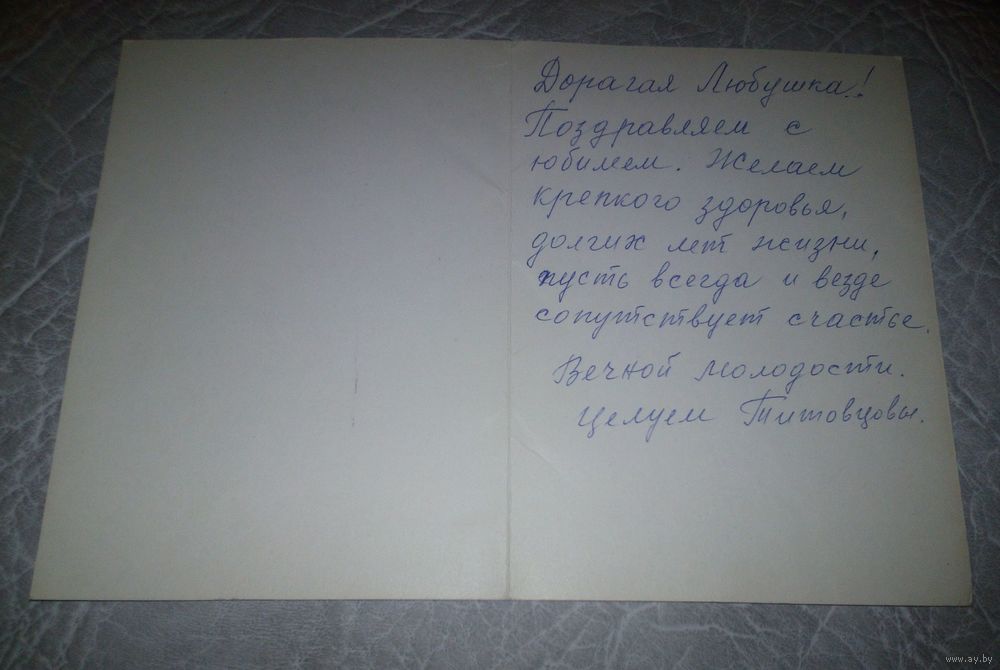 Дорагая Любушка!
Поздравляем с
юбилем. Желаем
крепкого здоровья,
долгих лет жизни,
пусть всегда и везде
сопутствует счастье.
Вечной молодости.
Целуем Титовцовы.
www.ay.by